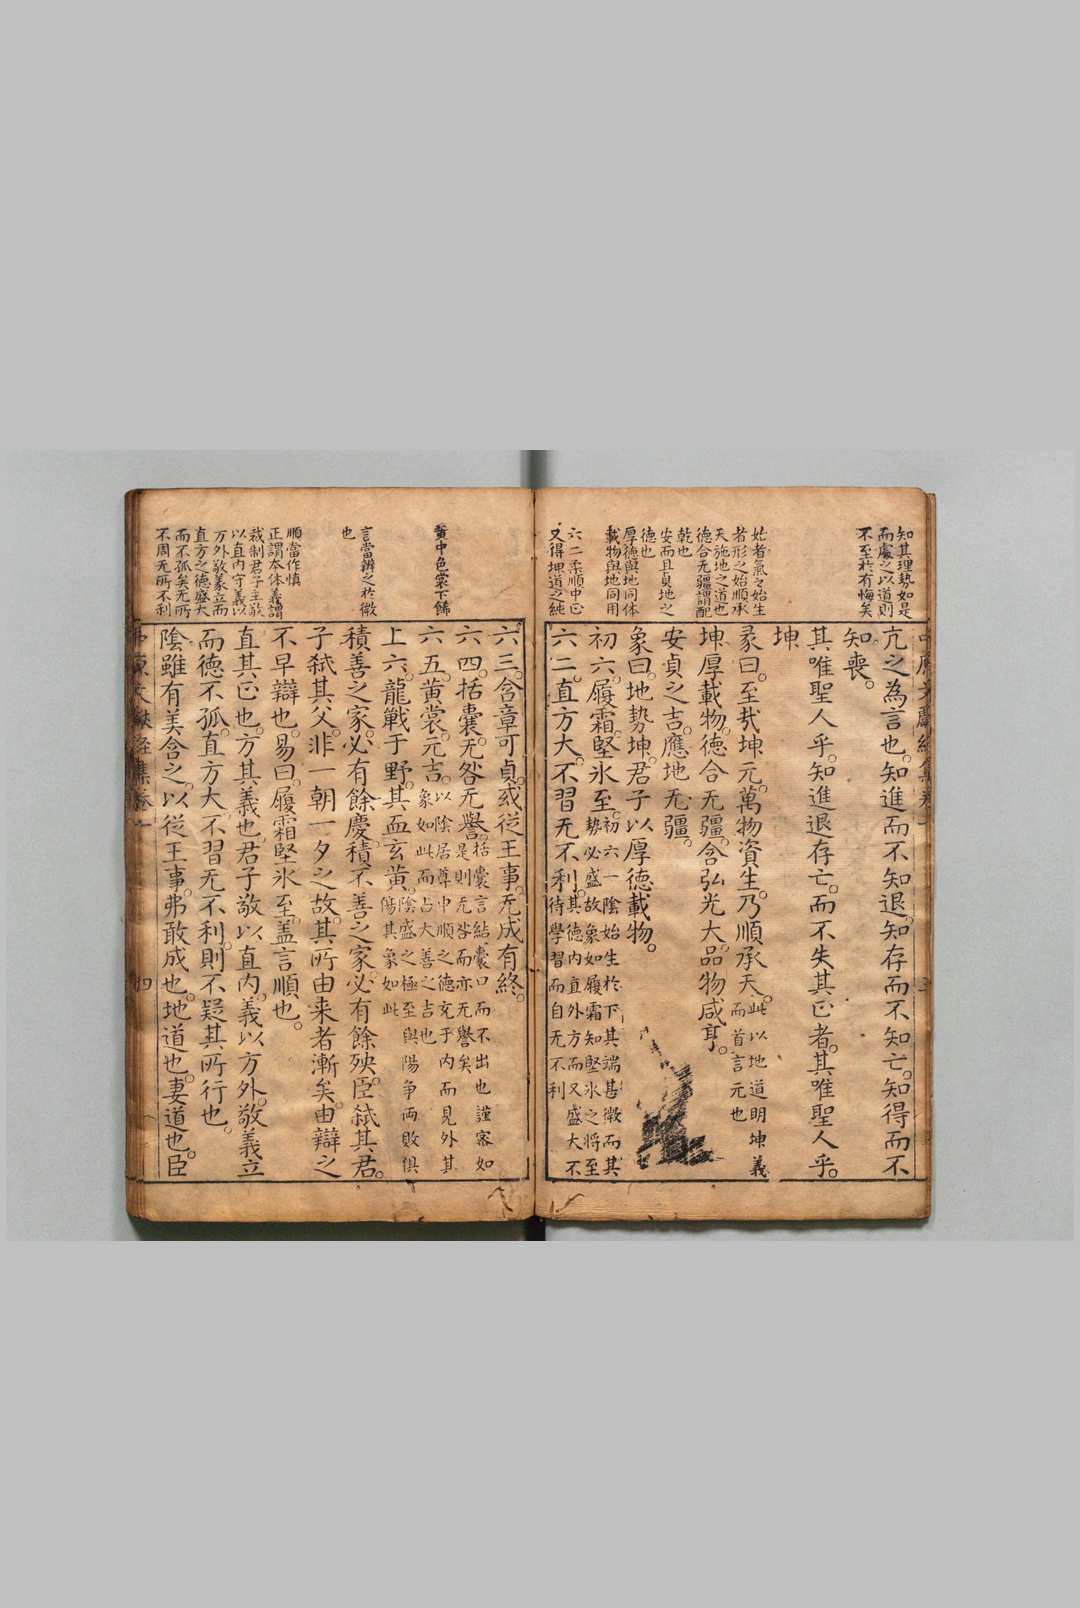 知其理勢如是
而處之以道則
不至於有悔矣
亢之為言也知進而不知退知存而不知亡知得而不
知喪
其唯聖人乎知進退存亡而不失其正者其唯聖人乎
坤
始者氣之始生
者形之始順承
天施地之道也
彖曰至哉坤元萬物資生乃順承天此以地道明坤義
而首言元也
德合无疆謂配
乾也
坤厚載物德合无疆含弘光大品物咸亨
安而且貞地之
德也
安貞之吉應地无疆
厚德與地同体
載物與地同用
象曰地勢坤君子以厚德載物
初六履霜堅氷至初六一陰始生於下其端甚微而其
勢必盛故象如履霜知堅氷之将至
六二柔順中正
又得坤道之純
六二直方大不習无不利其德内直外方而又盛大不
待學習而自无不利
六三含章可貞或従王事无成有終
六四括囊无咎无譽括囊言結囊口而不出也謹密如
是則无咎而亦无譽矣
黄中色裳下餙
六五黄裳元吉以陰居尊中順之德充于内而見外其
象如此而占大善之吉也
上六龍戰于野其血玄黄陰盛之極至與陽争両敗俱
傷其象如此
言當辨之於微
也
積善之家必有餘慶積不善之家必有餘殃臣弑其君
子弑其父非一朝一夕之故其所由来者漸矣由辯之
不早辯也易曰履霜堅氷至盖言順也
順當作慎
正謂本体義謂
裁制君子主敬
以直内守義以
方外敬義立而
直方之德盛大
而不孤矣无所
不周无所不利
直其正也方其義也君子敬以直内義以方外敬義立
而德不孤直方大不習无不利則不疑其所行也
陰雖有美含之以従王事弗敢成也地道也妻道也臣
四